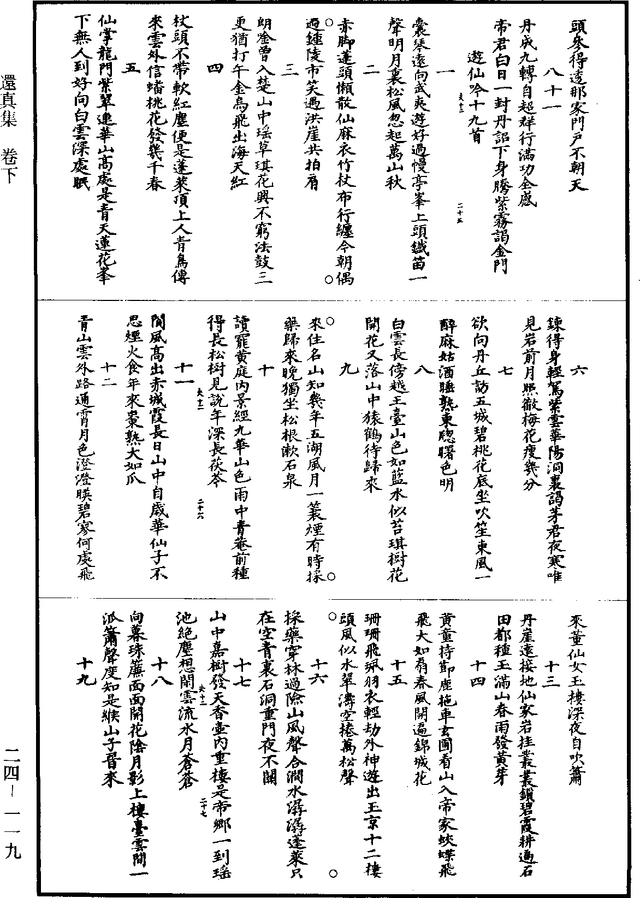 還真集　卷下
頭參得透那家門戶不朝天
八十一
丹成九轉自超群行滿功全感
帝君白日一封丹詔下身騰紫霧謁金門
遊仙吟十九首
一
囊琴遠向武夷遊好過慢亭峯上頭鐵笛一
聲明月裏松風忽起萬山秋
二
赤脚蓬頭懶散仙麻衣竹杖布行纏今朝偶
過鍾陵市笑遇洪崖共拍肩
三
朗唫曾入楚山中瑶草琪花興不窮法鼓三
更猶打午金烏飛出海天紅
四
杖頭不帶軟紅塵便是蓬萊頂上人青鳥傳
來雲外信蟠桃花發幾千春
五
仙掌龍門紫翠連華山高處是青天蓮花峯
下無人到好向白雲深處眠
六
鍊得身輕駕紫雲華陽洞裏謁茅君夜寒唯
見岩前月照徹梅花瘦幾分
七
欲向丹丘訪五城碧桃花底坐吹笙東風一
醉麻姑酒睡熟東牕曙色明
八
白雲長傍越王臺山色如藍水似苔琪樹花
開花又落山中猿鶴待歸來
九
來住名山知幾年五湖風月一蓑煙有時採
藥歸來晚獨坐松根漱石泉
十
讀罷黃庭内景經九華山色雨中青菴前種
得長松樹見說年深長茯苓
十一
閬風高出赤城霞長日山中自歲華仙子不
思煙火食年來棗熟大如瓜
十二
青山雲外路通霄月色澄澄暎碧寥何處飛
來董仙女玉樓深夜自吹簫
十三
丹崖遠接地仙家岩挂叢叢鎖碧霞耕過石
田都種玉滿山春雨發黃芽
十四
黃童持節鹿拖車玄圃看山入帝家蛺蝶飛
飛大如扇春風開遍錦城花
十五
珊珊飛珮羽衣輕劫外神遊出玉京十二樓
頭風似水翠濤空捲萬松聲
十六
採藥穿林過險山風聲合澗水潺潺蓬萊只
在空青裏石洞重門夜不關
十七
山中嘉樹發天香臺内重樓是帝鄉一到瑶
池絕塵想閑雲流水月蒼蒼
十八
向暮珠簾面面開花陰月影上樓臺雲間一
派簫聲度知是緱山子晉來
十九
二四—一一九